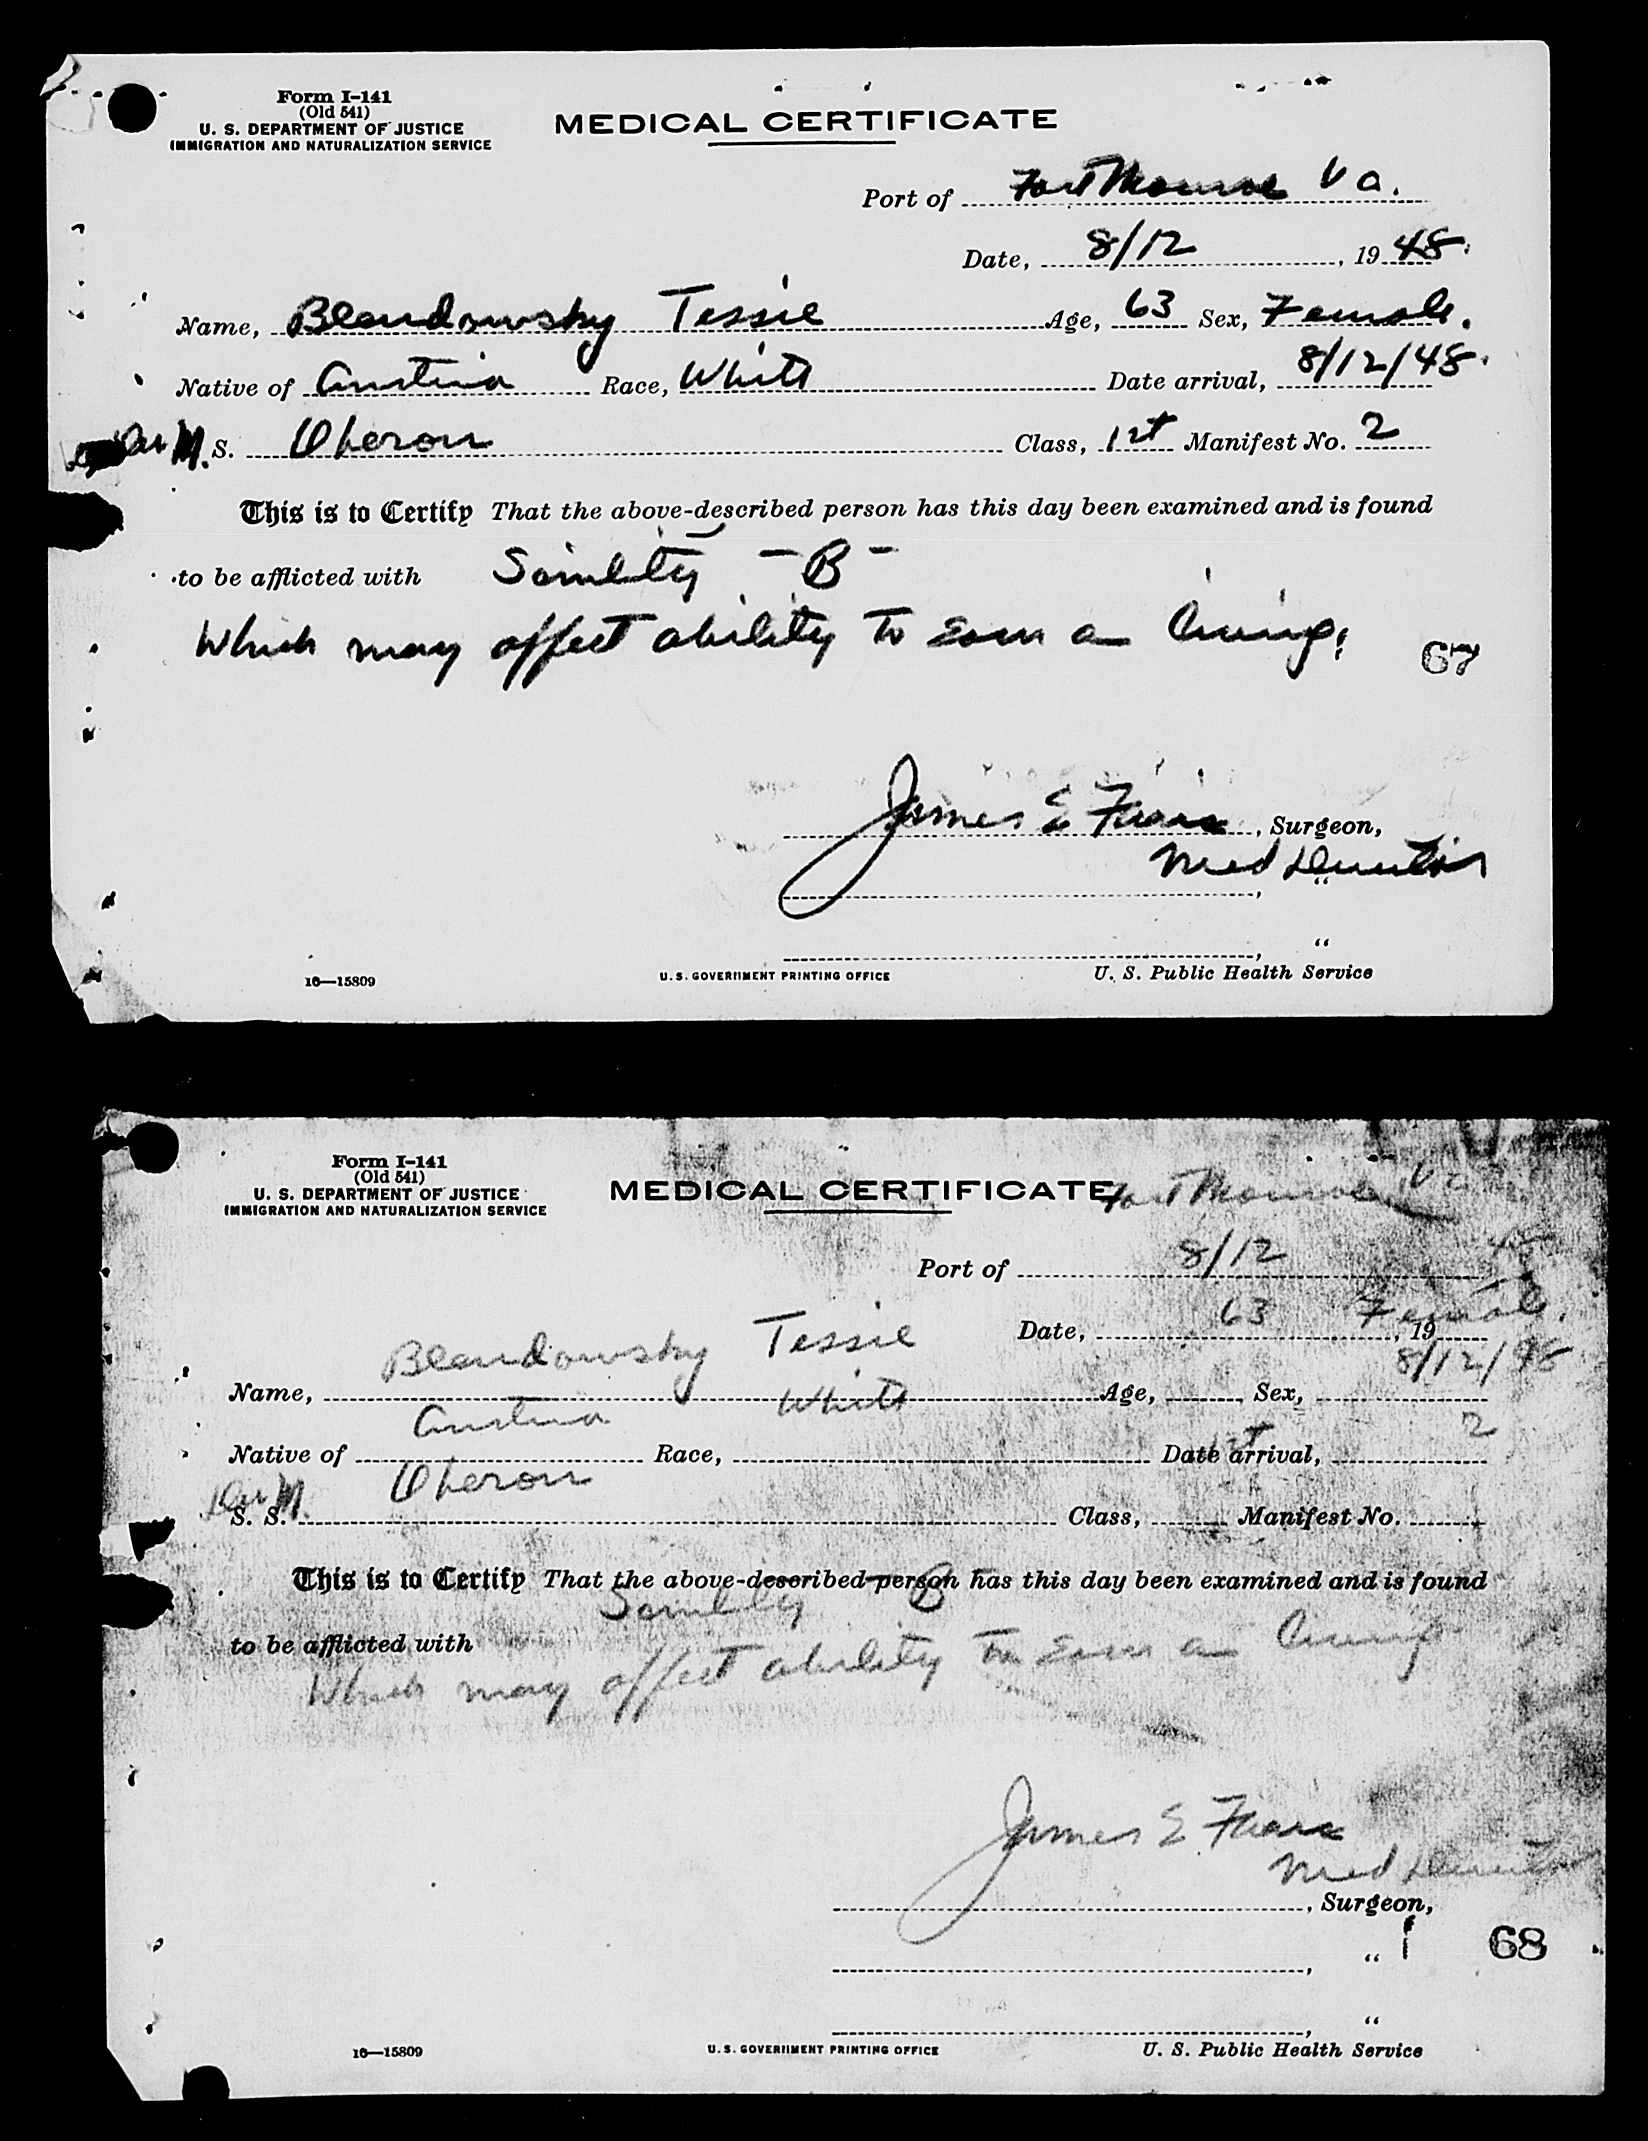 Form I-141
(Old 541)
U. S. DEPARTMENT OF JUSTICE
IMMIGRATION AND NATURALIZATION SERVICE
MEDICAL CERTIFICATE
Port of Fort Monroe Va.
Date, 8/12, 1948.
Name, Blandowsky Tessie Age, 63 Sex, Female.
Native of Austria Race, White Date arrival, 8/12/48.
M. S. Oberon Class, 1st Manifest No. 2
This is to Certify That the above-described person has this day been examined and is found
to be afflicted with Senility - B -
Which may affect ability to earn a living.
67
James E , Surgeon,
Med
, "
, "
16—15809
U. S. GOVERNMENT PRINTING OFFICE
U. S. Public Health Service
Form I-141
(Old 541)
U. S. DEPARTMENT OF JUSTICE
IMMIGRATION AND NATURALIZATION SERVICE
MEDICAL CERTIFICATE
Fort Monroe Va
Port of 8/12 48
Date, 63 Female. , 19
Blandowsky Tessie 8/12/48
Name, Age, Sex,
Austria White 2
Native of Race, Date arrival, 1st
Oberon
M.
S. S. Class, Manifest No.
This is to Certify That the above-described person has this day been examined and is found
Senility - B
to be afflicted with
Which may affect ability to earn a living
James E
Med
, Surgeon,
, " 68
, "
16—15809
U. S. GOVERNMENT PRINTING OFFICE
U. S. Public Health Service